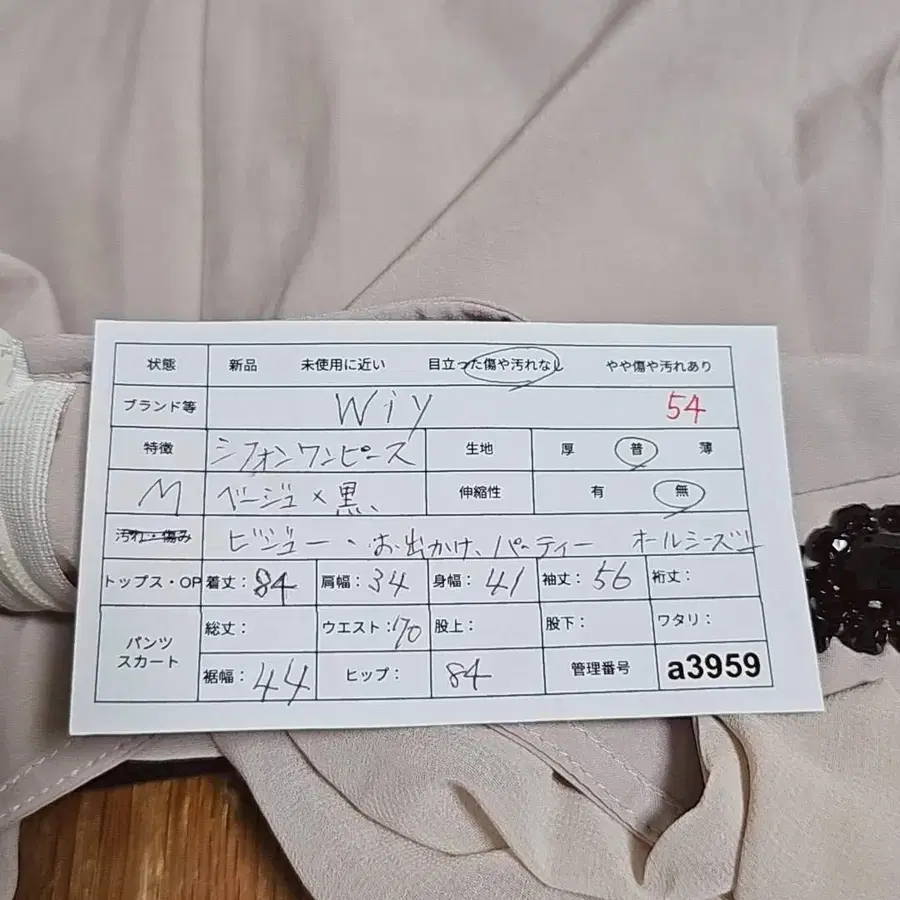 状態 新品 未使用に近い 目立った傷や汚れなし やや傷や汚れあり
ブランド等 Wiy 54
特徴 シフォンワンピース 生地 厚 普 薄
M ベージュ×黒、 伸縮性 有 無
汚れ・傷み ビジュー・お出かけ、パーティー オールシーズン
トップス・OP 着丈:84 肩幅:34 身幅:41 袖丈:56 裄丈:
パンツ スカート 総丈: ウエスト:70 股上: 股下: ワタリ:
裾幅:44 ヒップ: 84 管理番号 a3959